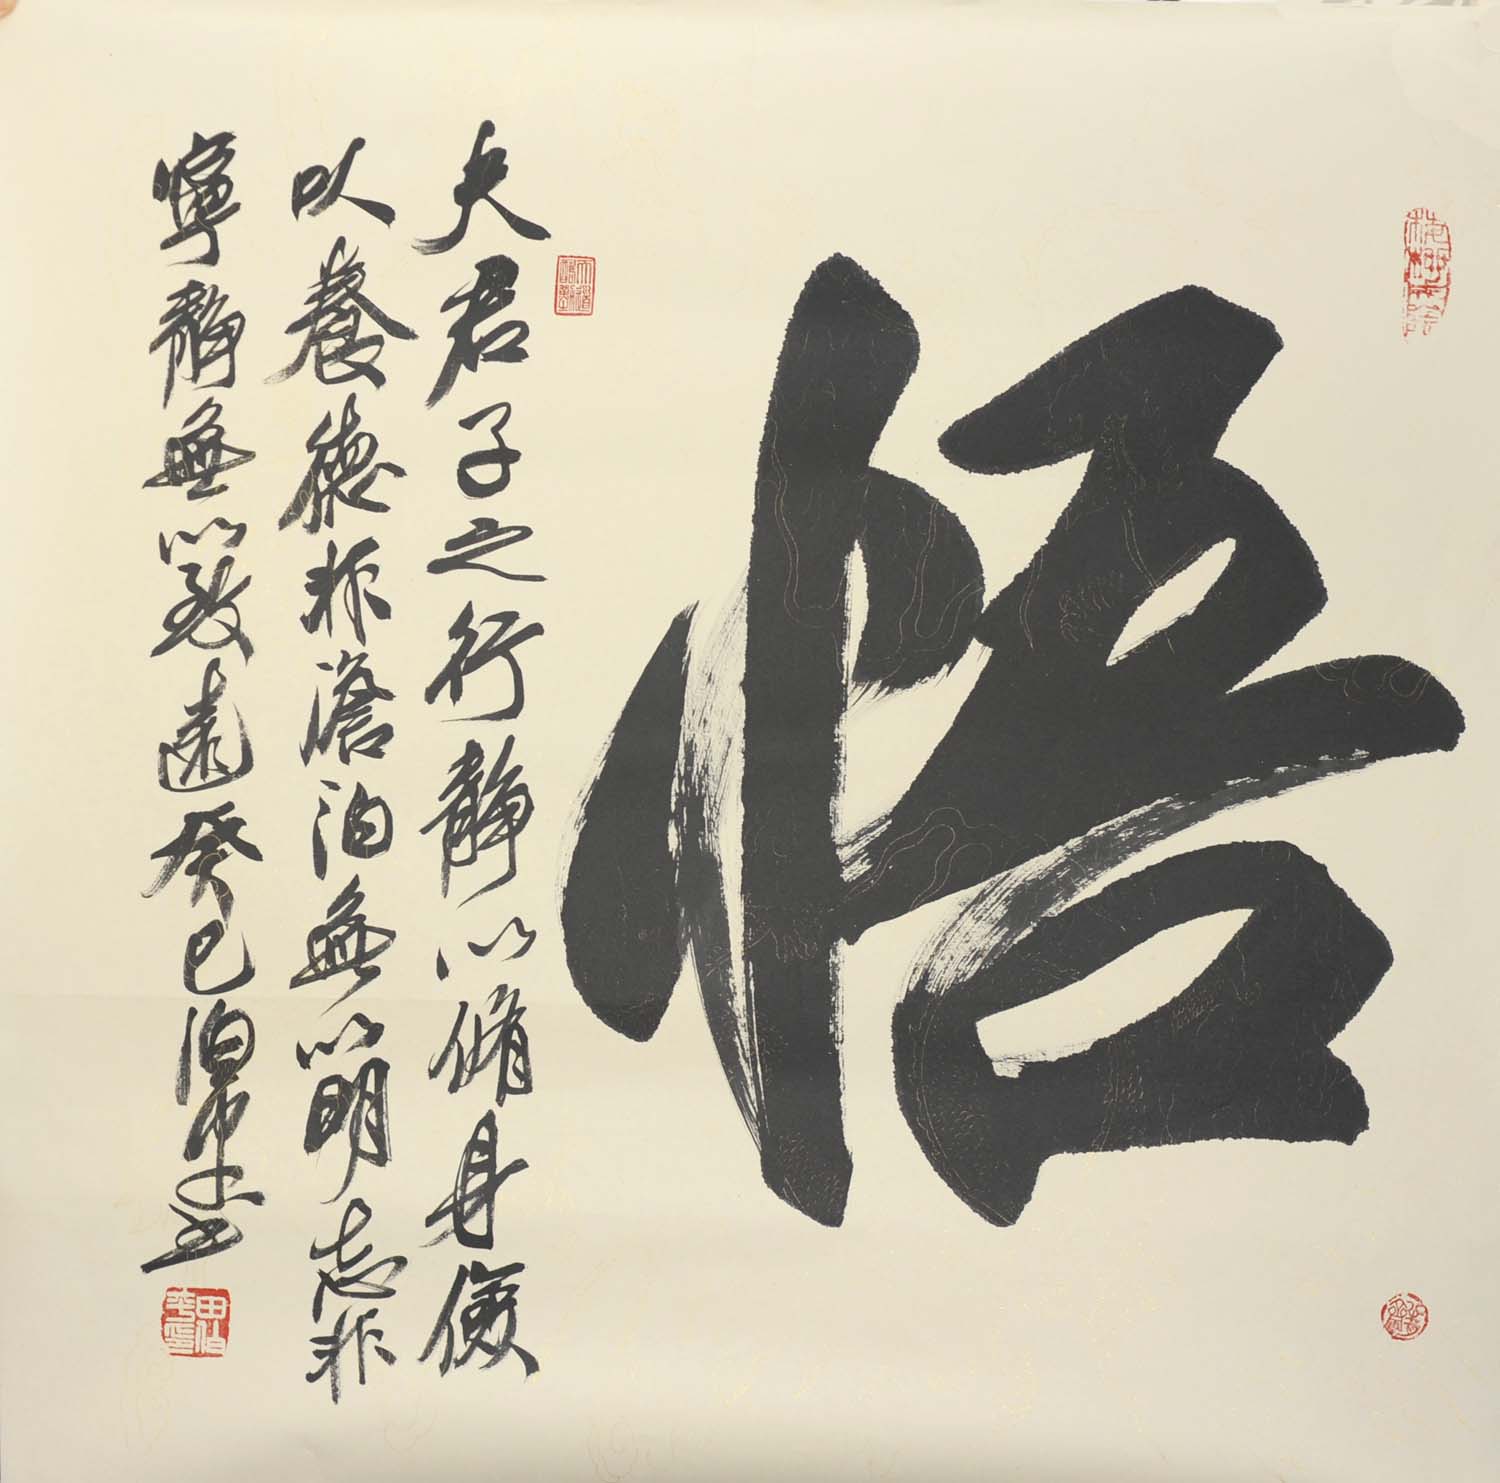 悟
夫君子之行靜以脩身儉
以養德非澹泊無以明志非
寧靜無以致遠癸巳伯平書